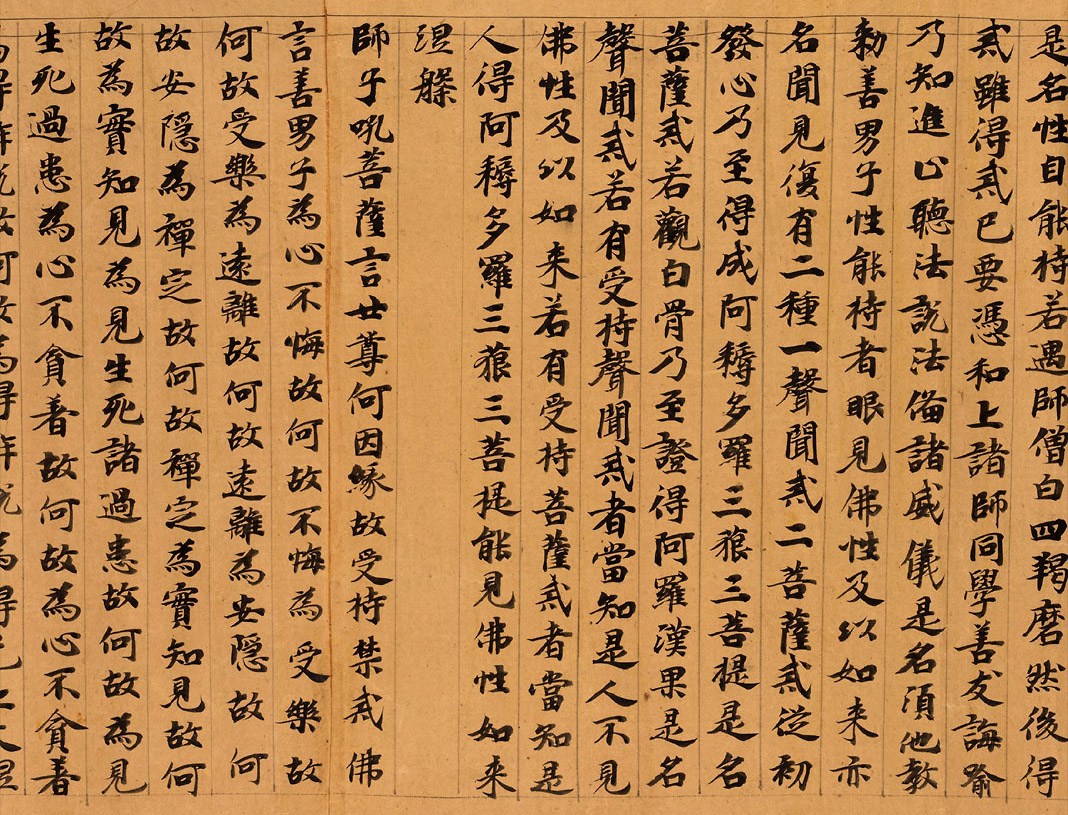 是名性自能持若遇師僧白四羯磨然後得
戒雖得戒已要憑和上諸師同學善友誨喻
乃知進止聽法說法備諸威儀是名須他教
勑善男子性能持者眼見佛性及以如来亦
名聞見復有二種一聲聞戒二菩薩戒從初
發心乃至得成阿耨多羅三藐三菩提是名
菩薩戒若觀白骨乃至證得阿羅漢果是名
聲聞戒若有受持聲聞戒者當知是人不見
佛性及以如来若有受持菩薩戒者當知是
人得阿耨多羅三藐三菩提能見佛性如来
涅槃
師子吼菩薩言世尊何因縁故受持禁戒佛
言善男子為心不悔故何故不悔為受樂故
何故受樂為遠離故何故遠離為安隱故何
故安隱為禪定故何故禪定為實知見故何
故為實知見為見生死諸過患故何故為見
生死過患為心不貪著故何故為心不貪著
為得解脫故何故為得解脫為得无上大涅